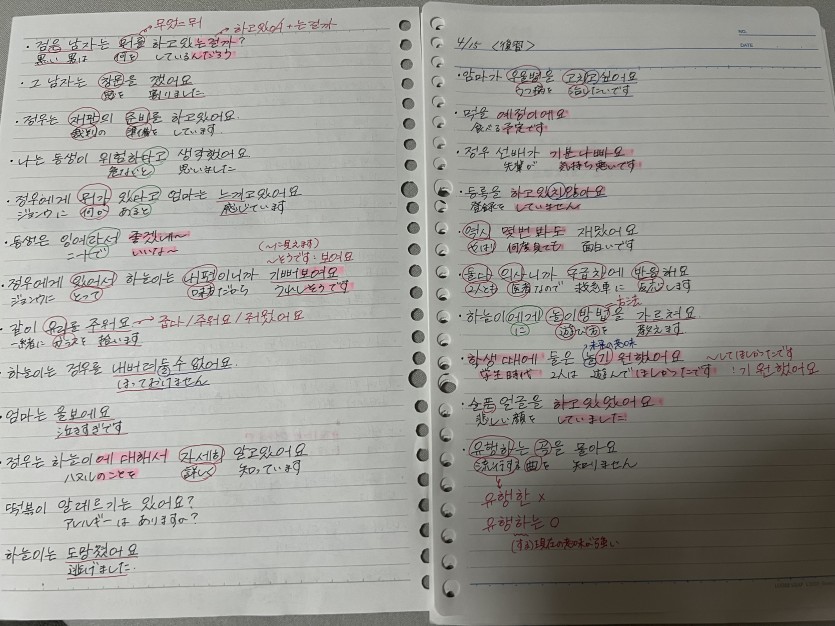 무엇=뭐
하고있어+는걸까
· 검은 남자는 뭐를 하고있는걸까?
黒い 男は 何を しているんだろう
· 그 남자는 창문을 깼어요
窓を 割りました
· 정우는 재판의 준비를 하고있어요.
裁判の 準備を しています
· 나는 동생이 위험하다고 생각했어요
危ないと 思いました
· 정우에게 뭐가 있다고 엄마는 느끼고있어요
ジョンウに 何か あると 感じています
· 동생은 잉여라서 좋겠네~
ニートで いいな~
(~に見えます)
~そうです:보여요
· 정우에게 있어서 하늘이는 내편이니까 기뻐보여요
ジョンウに とって 味方だから うれしそうです
· 같이 유리를 주워요 → 줍다/주워요/주웠어요
一緒に ガラスを 拾います
· 하늘이는 정우를 내버려둘수 없어요.
ほっておけません
· 엄마는 울보에요
泣きすぎです
· 정우는 하늘이에 대해서 자세히 알고있어요
ハヌルのことを 詳しく 知っています
떡볶이 알레르기는 있어요?
アレルギーは ありますか?
하늘이는 도망쳤어요
逃げました.
NO.
DATE
4/15 <復習>
· 엄마가 우울병을 고치고싶어요
うつ病を 治したいです
· 먹을 예정이에요
食べる予定です
· 정우 선배가 기분나빠요
先輩が 気持ち悪いです
· 등록을 하고있지않아요
登録を していません
· 역시 몇번봐도 재밌어요
やはり 何度見ても 面白いです
· 둘다 의사니까 구급차에 반응해요
2人とも 医者なので 救急車に 反応します
方法
· 하늘이에게 놀이방법을 가르쳐요
に 遊び方を 教えます
未来の意味
· 학생때에 둘은 놀기 원했어요 ~してほしかったです
学生時代 2人は 遊んでほしかったです :기 원했어요
· 슬픈 얼굴을 하고있었어요
悲しい 顔を していました
· 유행하는 곡을 몰아요
流行する 曲を 知りません
유행한 ×
유행하는 ○
(する)現在の意味が強い